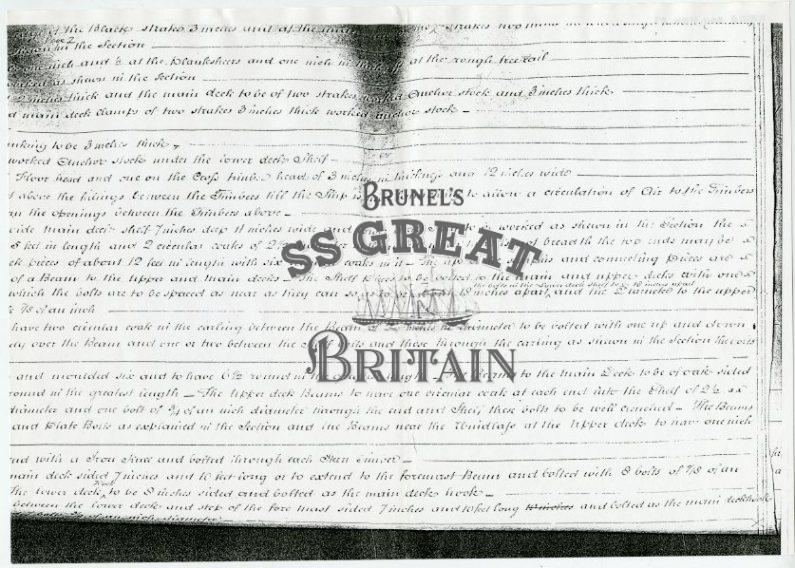 of the Black strakes 3 inches and at the main strakes two
shown in the Section
inch and ½ at the planksheers and one inch in at the rough treerail
worked as shown in the Section
inches thick and the main deck to be of two strakes worked Anchor stock and 3 inches thick
d main deck clamps of two strakes 3 inches thick worked anchor stock
nking to be 3 inches thick
worked Anchor stock under the lower deck Shelf
Floor head and one on the Cross timber head of 3 inches in thickness and 12 inches wide
t above the filings between the Timbers till the Ship is to allow a circulation of Air to the Timbers
in the openings between the Timbers above
BRUNEL'S
wide main deck shelf 7 inches deep 11 inches wide and to be worked as shown in the Section the
5 feet in length and 2 circular coaks of 2 of breadth the two ends may be
SS GREAT
eck pieces of about 12 feet in length with six coaks in it and connecting pieces are
of a Beam to the upper and main decks The Shelf pieces to be bolted to the main and upper decks with one
the bolts in the Lower deck Shelf to be 18 inches apart
which the bolts are to be spaced as near as they can 18 inches apart, and the Diameter to the upper
⅞ of an inch
have two circular coak in the carling between the Beam of inches in Diameter to be bolted with one up and down
dy over the Beam and one or two between the Shelf bolts and these through the carling as shown in the Section the bolts
BRITAIN
and moulded six and to have 6½ round in the The Beams to the main Deck to be of oak sided
round in the greatest length The upper deck Beams to have one circular coak at each end into the Shelf of 2½
diameter and one bolt of ¾ of an inch diameter through the end and Shelf, these bolts to be well clenched The Beams
and Plate Bolts as explained in the Section and the Beams near the Windlass at the Upper deck to have one inch
nd with a Iron Knee and bolted through each Stern Timber
main deck sided 7 inches and 10 feet long or to extend to the foremast Beam and bolted with 8 bolts of ⅞ of an
the lower deck Hook to be 8 inches sided and bolted as the main deck hook
between the lower deck and step of the fore mast sided 7 inches and 10 feet long inches and bolted as the main deckhook